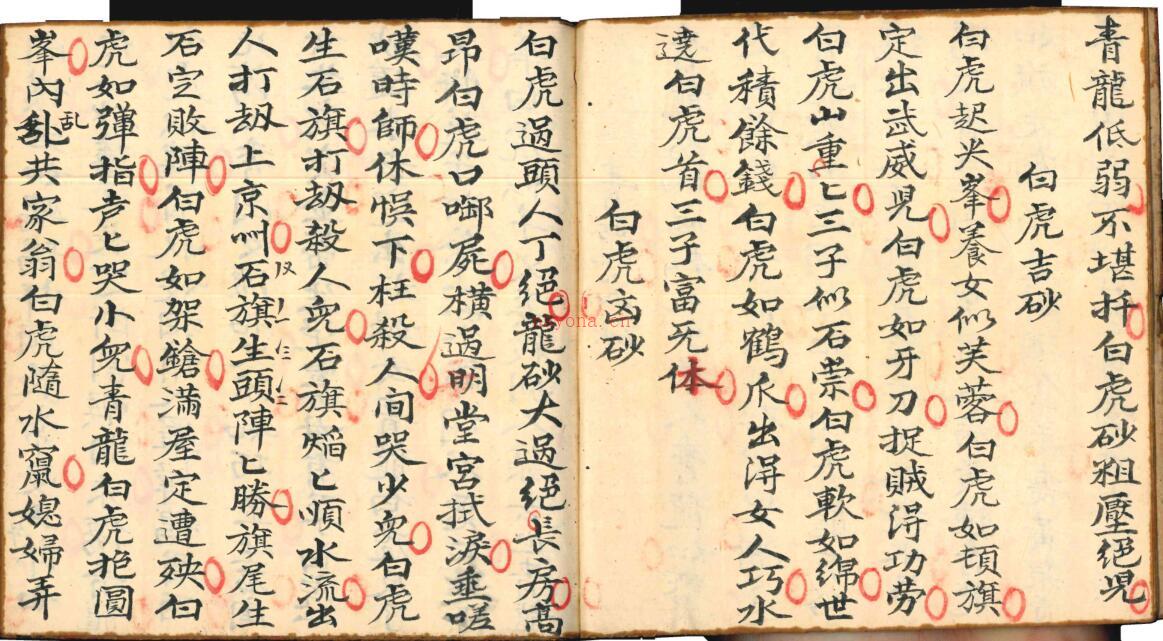 青龍低弱不堪扦白虎砂粗壓絕児
白虎吉砂
白虎起尖峯養女似芙蓉白虎如頓旗
定出武威児白虎如牙刀捉賊淂功劳
白虎山重匕三子似石崇白虎軟如綿世
代積餘錢白虎如鶴爪出淂女人巧水
遶白虎首三子富旡体
白虎凶砂
白虎過頭人丁絕龍砂大過絕長房高
昻白虎口啣屍橫過明堂宮拭淚垂嗟
嘆時師休悮下枉殺人间哭少兒白虎
生石旗打刼殺人兒石旗焰匕順水流出
人打刼上京州石旗生頭陣匕勝旗尾生
石定敗陣白虎如架鎗滿屋定遭殃白
虎如彈指声匕哭小兒青龍白虎抱圓
峯內乱共家翁白虎隨水竄媳婦弄